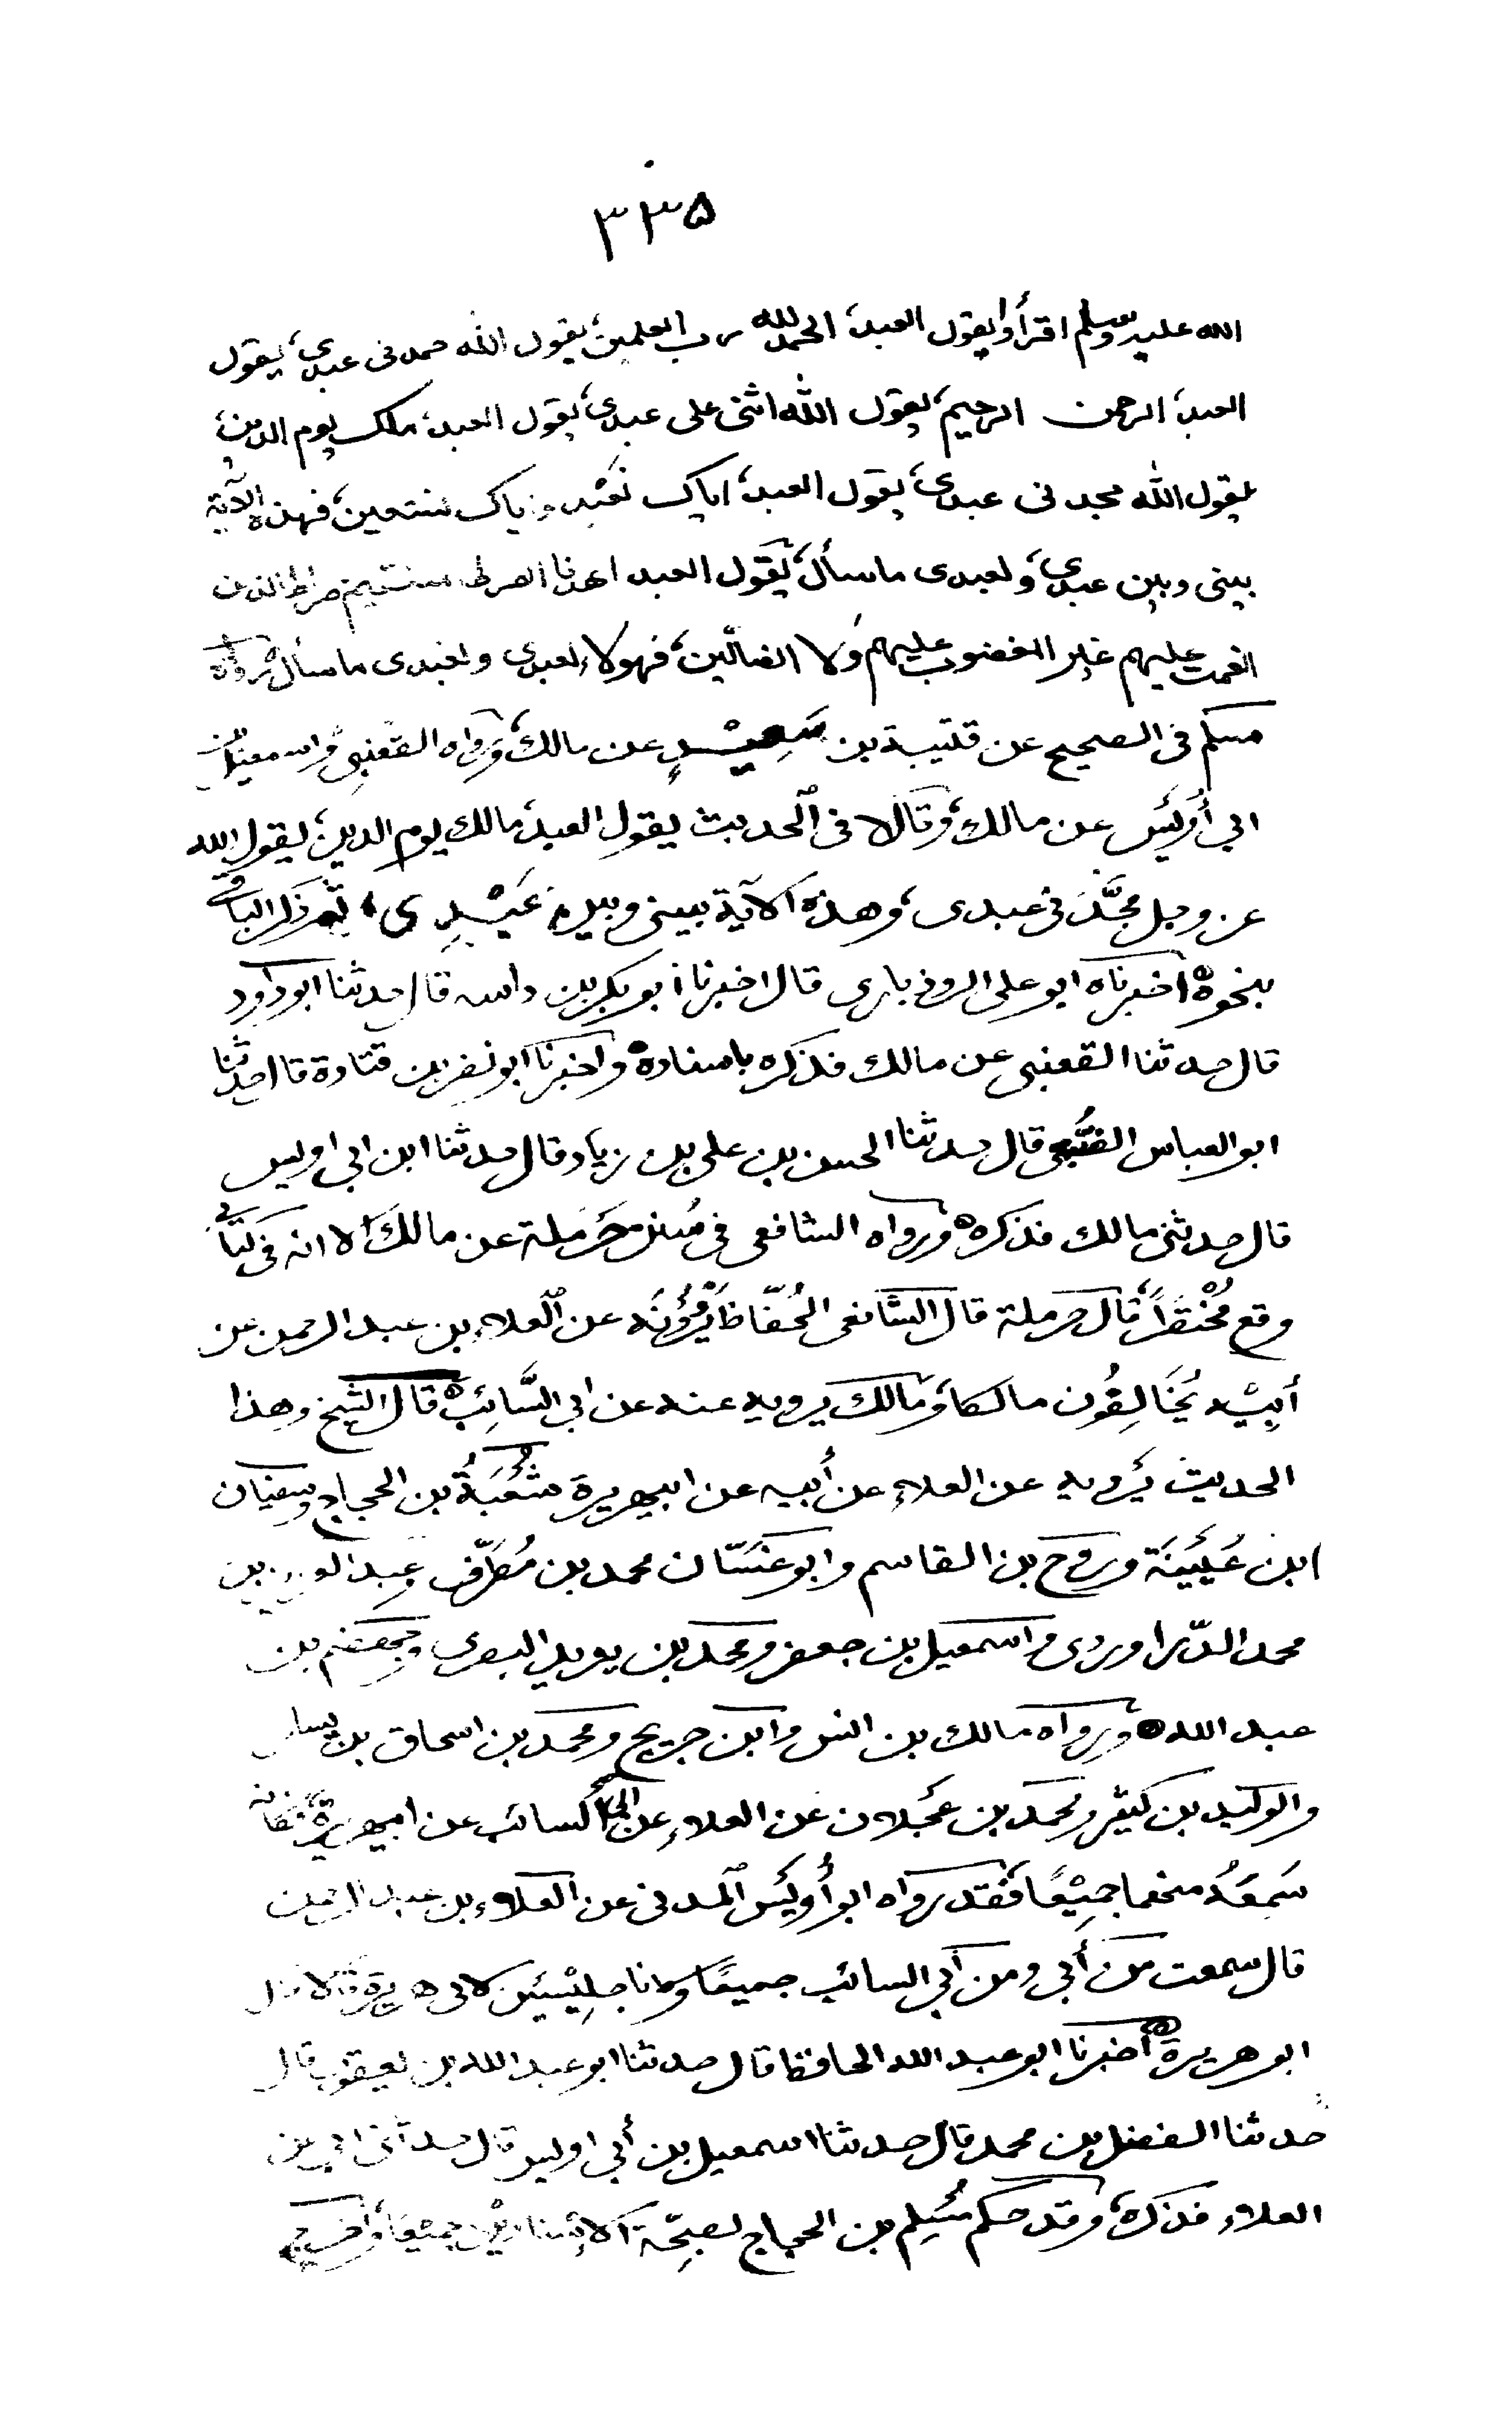 ٣٣۵
الله عليه وسلم اقرأوا يقول العبد، الحمد لله رب العلمين، يقول الله حمدنى عبدى، يقول
العبد، الرحمن الرحيم، يقول الله اثنى على عبدى، يقول العبد، ملك يوم الدين،
يقول الله مجدنى عبدى، يقول العبد، اياك نعبد واياك نستعين، فهذه الآية
بينى وبين عبدى، ولعبدى ماسأل، يقول العبد اهدنا الصراط المستقيم صراط الذين
انعمت عليهم غير المغضوب عليهم ولا الضالّين، فهولاء لعبدى ولعبدى ماسأل، رواه
مسلم فى الصحيح عن قتيبة بن سَعِيْدٍ عن مالك، ورواه القعنبى واسمعيل بن
ابي أُوَيْس عن مالك، وقالا فى الحديث يقول العبد، مالك يوم الدين، يقول الله
عز وجل مجَّدَنى عبدى، وهذه الآية بينى وبين عَبْدِى، ثم ذكر الباقى
بنحوه أخبرناه ابو على الروذبارى قال اخبرنا ابو بكر بن داسه قال حدثنا ابو داود
قال حدثنا القعنبى عن مالك فذكره باسناده واخبرنا ابو نصر بن قتادة قال حدثنا
ابو العباس الضُّبَعى قال حدثنا الحسن بن على بن زياد قال حدثنا ابن ابي اويس
قال حدثنى مالك فذكره ورواه الشافعى فى سُنن حَرْملة عن مالك الا انه فى كتابى
وقع مُخْتَصَراً، قال حرملة قال الشافعى الحُفّاظ يَرْوُوْنَه عن العلاء بن عبد الرحمن عن
أَبِيْه يُخَالِفُون مالكا، ومالك يرويه عنه عن ابي السَّائِبِ قال الشيخ وهذا
الحديث يَرْويه عن العلاء عن أبيه عن ابيهريرة شُعْبَةُ بن الحجاج وسفيان
ابن عُيَيْنَة وروح بن القاسم وابو غسّان محمد بن مُطَرِّف وعبد العزيز بن
محمد الدّراوردى واسمعيل بن جعفر ومحمد بن يزيد البصرى وجهضم بن
عبد الله ورواه مالك بن انس وابن جريج ومحمد بن اسحاق بن يسار
والوليد بن كثير ومحمد بن عجلان عن العلاء عن ابي السائب عن ابيهريرة، فكانه
سَمِعَهُ منهما جميْعًا، فقد رواه ابو أُوَيْس المدنى عن العلاء بن عبد الرحمن
قال سمعت من أَبي ومن أبي السائب جميعًا وكانا جلِيْسَيْن لابى هريرة قالا قال
ابو هريرة أخبرنا ابو عبد الله الحافظ قال حدثنا ابو عبد الله بن يعقوب قال
حدثنا الفضل بن محمد قال حدثنا اسمعيل بن أبي اويس قال حدثنى ابي عن
العلاء فذكره، وقد حكم مُسْلِم بن الحجاج لصِحّة الاِسْنادَيْن جميْعًا، وأخرج